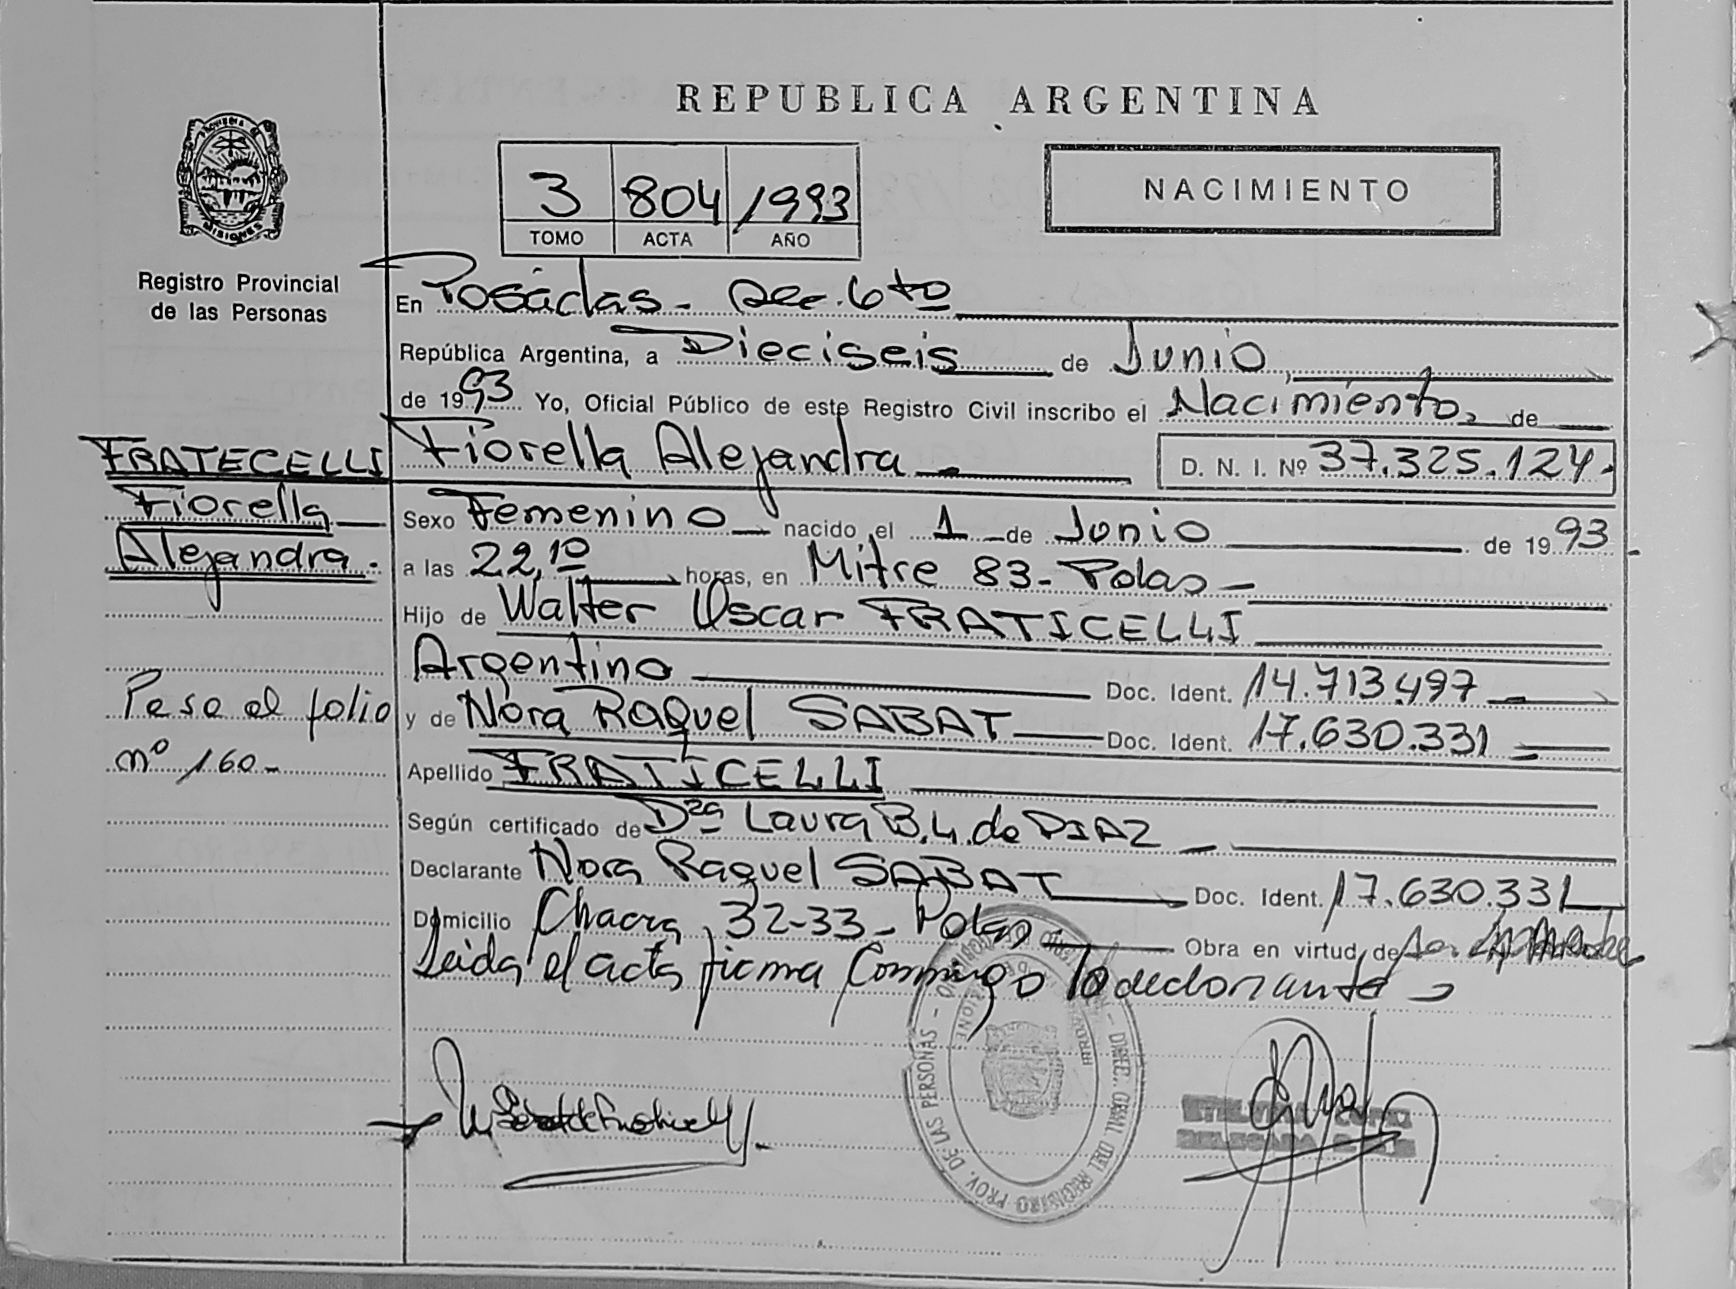 REPUBLICA ARGENTINA
PROVINCIA DE MISIONES
Registro Provincial
de las Personas
3 804 1993
TOMO ACTA AÑO
NACIMIENTO
En Posadas - Sec. 6to
República Argentina, a Dieciseis de Junio,
de 1993 Yo, Oficial Público de este Registro Civil inscribo el Nacimiento, de
Fiorella Alejandra D. N. I. Nº 37.325.124.
Sexo Femenino nacido el 1 de Junio de 1993
a las 22,10 horas, en Mitre 83 - Pdas -
Hijo de Walter Oscar FRATICELLI
Argentino Doc. Ident. 14.713.497
y de Nora Raquel SABAT Doc. Ident. 17.630.331
Apellido FRATICELLI
Según certificado de Dra Laura B. L. de DIAZ
Declarante Nora Raquel SABAT Doc. Ident. 17.630.331
Domicilio Chacra 32-33 - Pdas Obra en virtud de
Leída el acta firma conmigo la declarante
FRATECELLI
Fiorella
Alejandra.
Pase al folio
nº 160 -
DE LAS PERSONAS - DIREC. GRAL. DEL REGISTRO PROV.